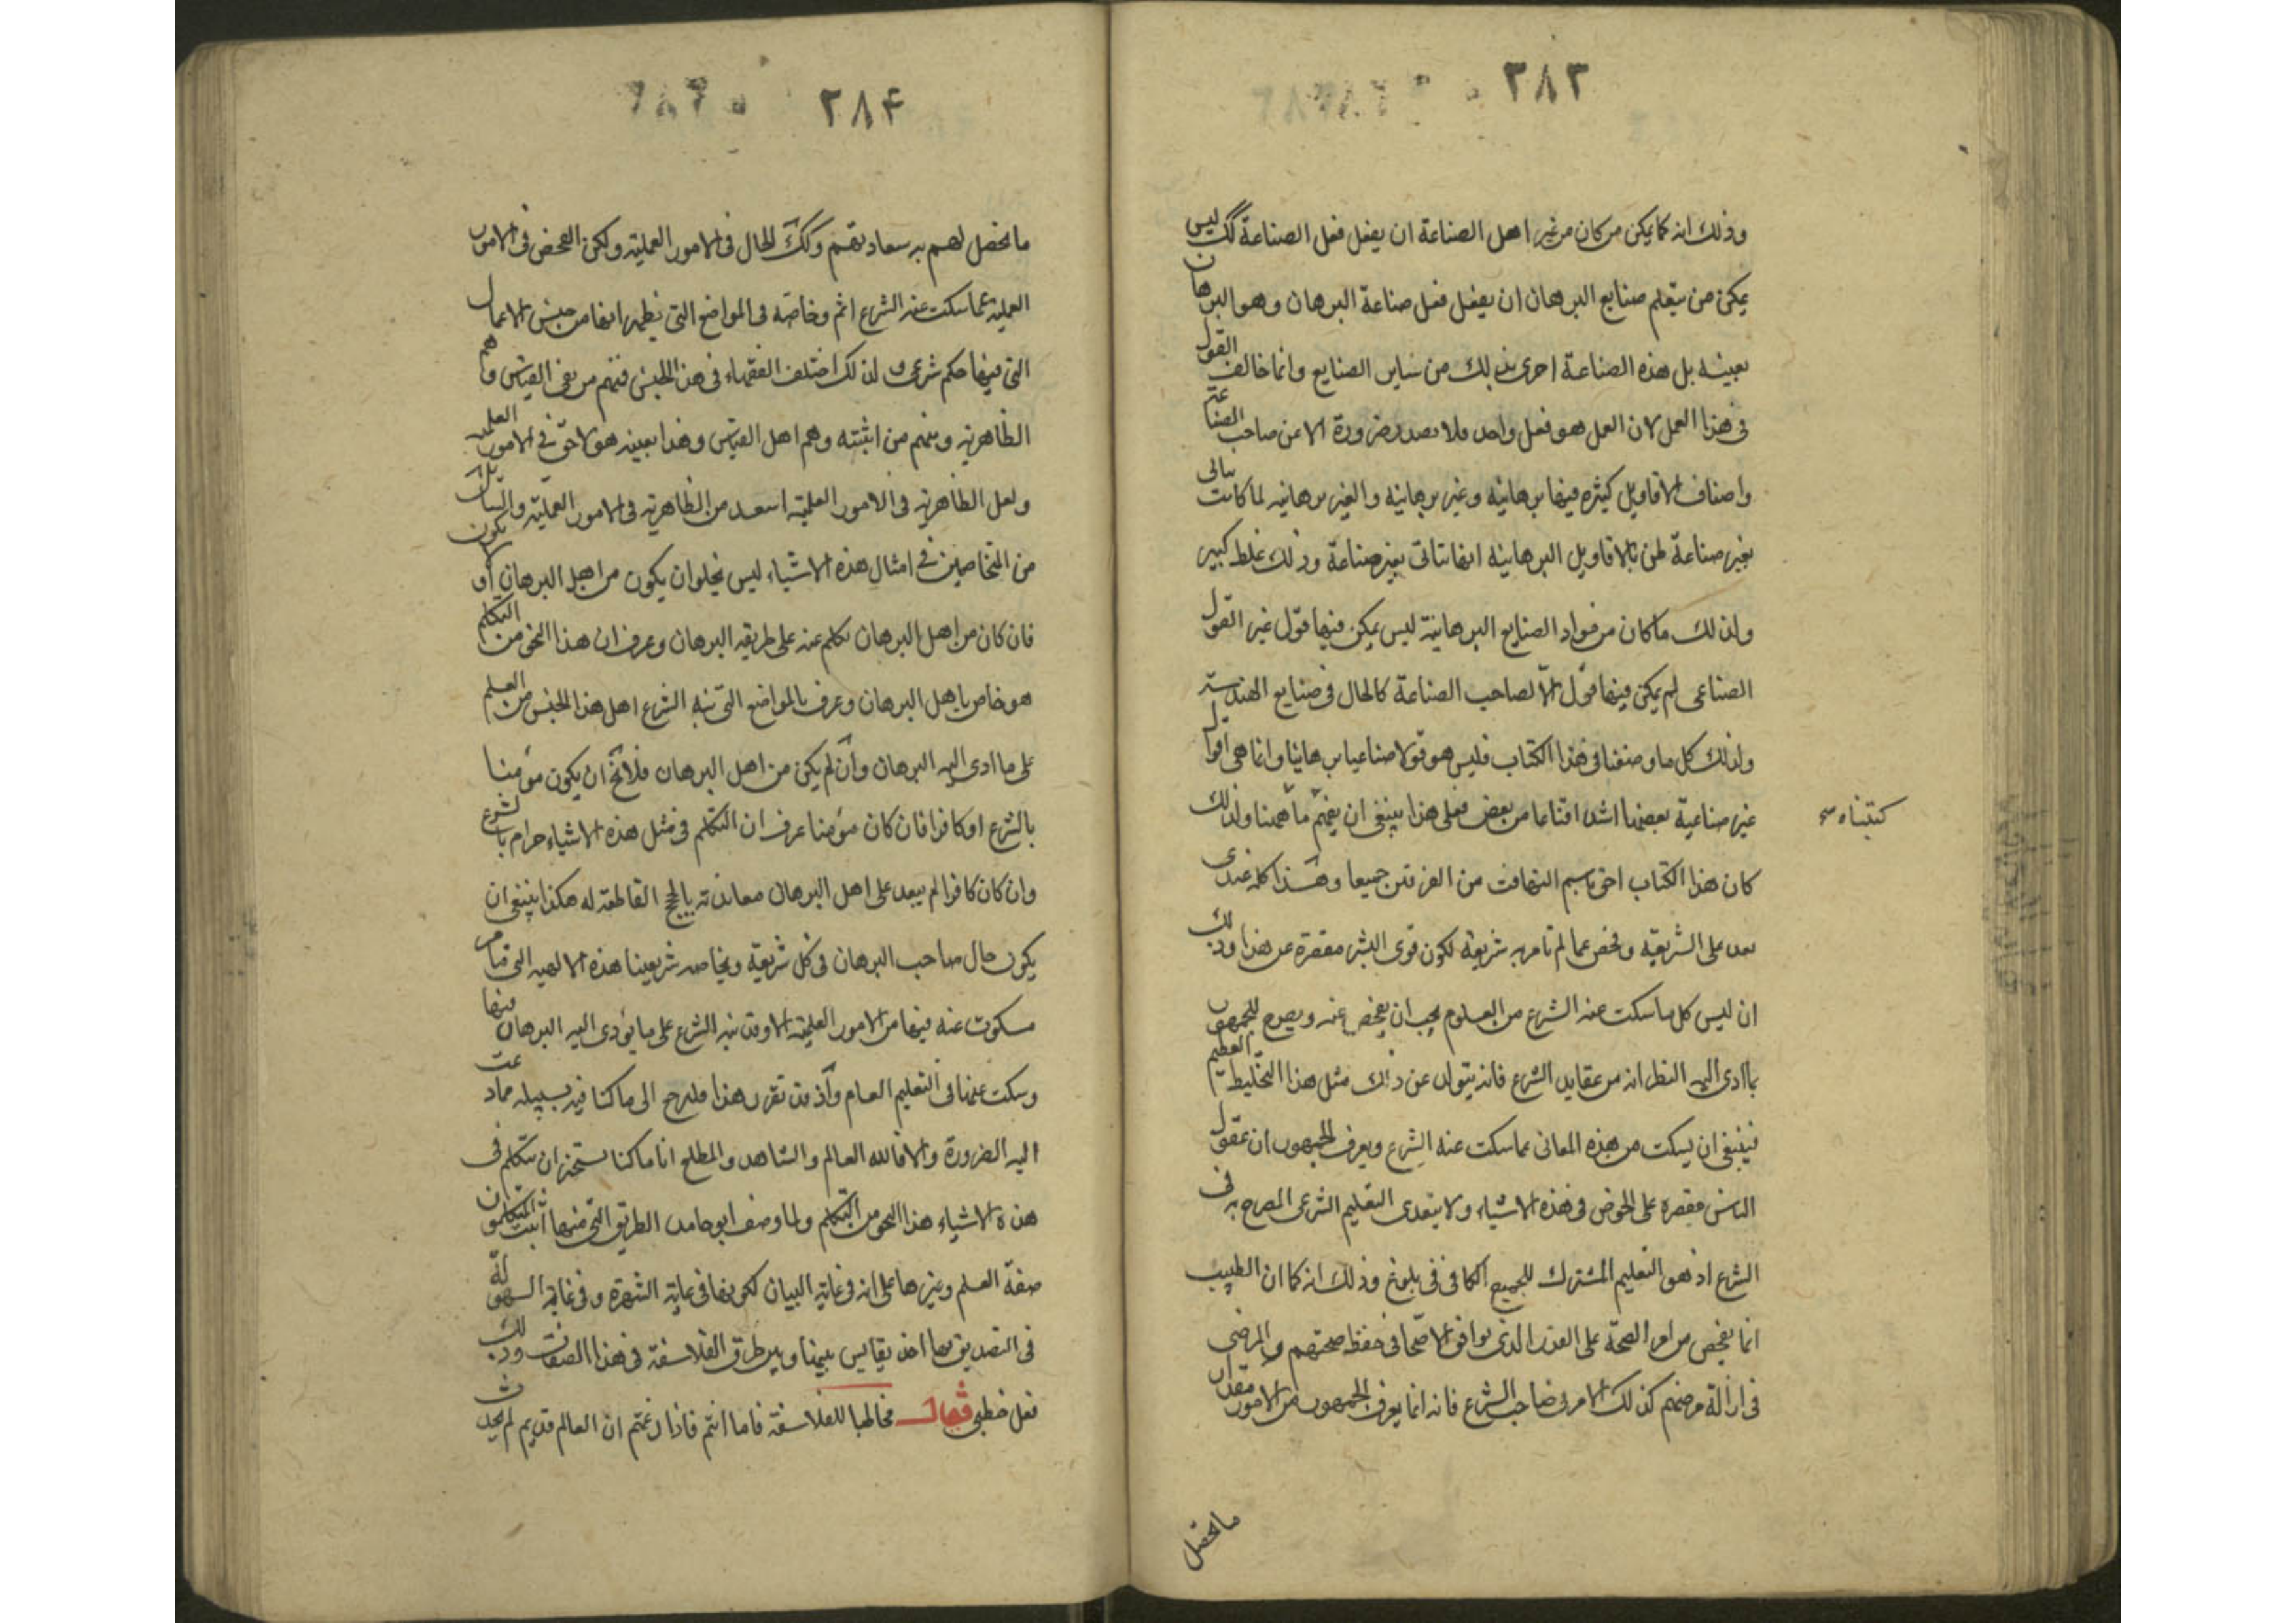 ٢٨٣
وذلك انه كما يمكن من كان من غير اهل الصناعة ان يفعل فعل الصناعة كك ليس
يمكن من يتعلم صنايع البرهان ان يفعل فعل صناعة البرهان وهو البرهان
بعينه بل هذه الصناعة احرى بذلك من ساير الصنايع وانما خالف القول
فى هذا العمل لان العمل هو فعل واحد فلا يصدر ضرورة الا عن صاحب الصناعة
واصناف الاقاويل كثيره فيها برهانيه وغير برهانيه والغير برهانيه لما كانت تتاتى
بغير صناعة ظن بالاقاويل البرهانيه انها تتاتى بغير صناعة وذلك غلط كبير
ولذلك ما كان من مواد الصنايع البرهانية ليس يمكن فيها قول غير القول
الصناعى لم يمكن فيها قول الا لصاحب الصناعة كالحال فى صنايع الهندسة
ولذلك كل ما وصفنا فى هذا الكتاب فليس هو قولا صناعيا برهانيا وانما هى اقوال
غير صناعية بعضها اشد اقناعا من بعض فعلى هذا ينبغى ان يفهم ما ههنا ولذلك
كتبناه
كان هذا الكتاب احق باسم التهافت من الفرقتين جميعا وهذا كله عندى
تعد على الشريعه وفحص عما لم تامر به شريعة لكون قوى البشر مقصرة عن هذا وذلك
ان ليس كل ما سكت عنه الشرع من العلوم يجب ان يفحص عنه ويصرح للجمهور
بما ادى اليه النظر انه من عقايد الشرع فانه يتولد عن ذلك مثل هذا التخليط العظيم
فينبغى ان يسكت من هذه المعانى عما سكت عنه الشرع ويعرف الجمهور ان عقول
الناس مقصره على الخوض فى هذه الاشياء ولا يتعدى التعليم الشرعى المصرح به فى
الشرع اذ هو التعليم المشترك للجميع الكافى فى بلوغ وذلك انه كما ان الطبيب
انما يفحص من امر الصحة على القدر الذى يوافق الاصحا فى حفظ صحتهم والمرضى
فى ازالة مرضهم كذلك الامر فى صاحب الشرع فانه انما يعرف الجمهور من الامور مقدار
ما تحصل
٢٨۴
ما تحصل لهم به سعادتهم وكك الحال فى الامور العملية ولكن الفحص فى الامور
العمليه عما سكت عنه الشرع اتم وخاصة فى المواضع التى يظهر انها من جنس الاعمال
التى فيها حكم شرعى ولذلك اختلف الفقهاء فى هذا الجنس فمنهم من نفى القياس وهم
الظاهرية ومنهم من اثبته وهم اهل القياس وهذا بعينه هو لاحق فى الامور العلميه
ولعل الظاهرية فى الامور العلمية اسعد من الظاهرية فى الامور العمليه والسايل
من المتخاصمين فى امثال هذه الاشياء ليس يخلو ان يكون من اهل البرهان او لا يكون
فان كان من اهل البرهان تكلم عنه على طريقه البرهان وعرف ان هذا النحو من التكلم
هو خاص باهل البرهان وعرف بالمواضع التى نبه الشرع اهل هذا الجنس من العلم
على ما ادى اليه البرهان وان لم يكن من اهل البرهان فلا يخ ان يكون مؤمنا
بالشرع او كافرا فان كان مؤمنا عرف ان التكلم فى مثل هذه الاشياء حرام بالشرع
وان كان كافرا لم يبعد على اهل البرهان معاندته بالحجج القاطعه له هكذا ينبغى ان
يكون حال صاحب البرهان فى كل شريعة وبخاصه شريعتنا هذه الالهيه التى ما من
مسكوت عنه فيها من الامور العلمية الا وقد نبه الشرع على ما يؤدى اليه البرهان فيها
وسكت عنها فى التعليم العام واذ قد تقرر هذا فلنرجع الى ما كنا فيه بسبيله مما دعت
اليه الضرورة والا فالله العالم والشاهد والمطلع انا ما كنا نستجيز ان نتكلم فى
هذه الاشياء هذا النحو من التكلم ولما وصف ابو حامد الطريق التى منها اثبت المتكلمون
صفة العلم وغيرها على انه فى غاية البيان لكونها فى غاية الشهرة وفى غاية السهولة
فى التصديق بها اخذ يقايس بينها وبين طرق الفلاسفة فى هذا الصفات وذلك
فعل خطبى فقال مخاطبا للفلاسفة فاما انتم فاذا زعمتم ان العالم قديم لم يحدث